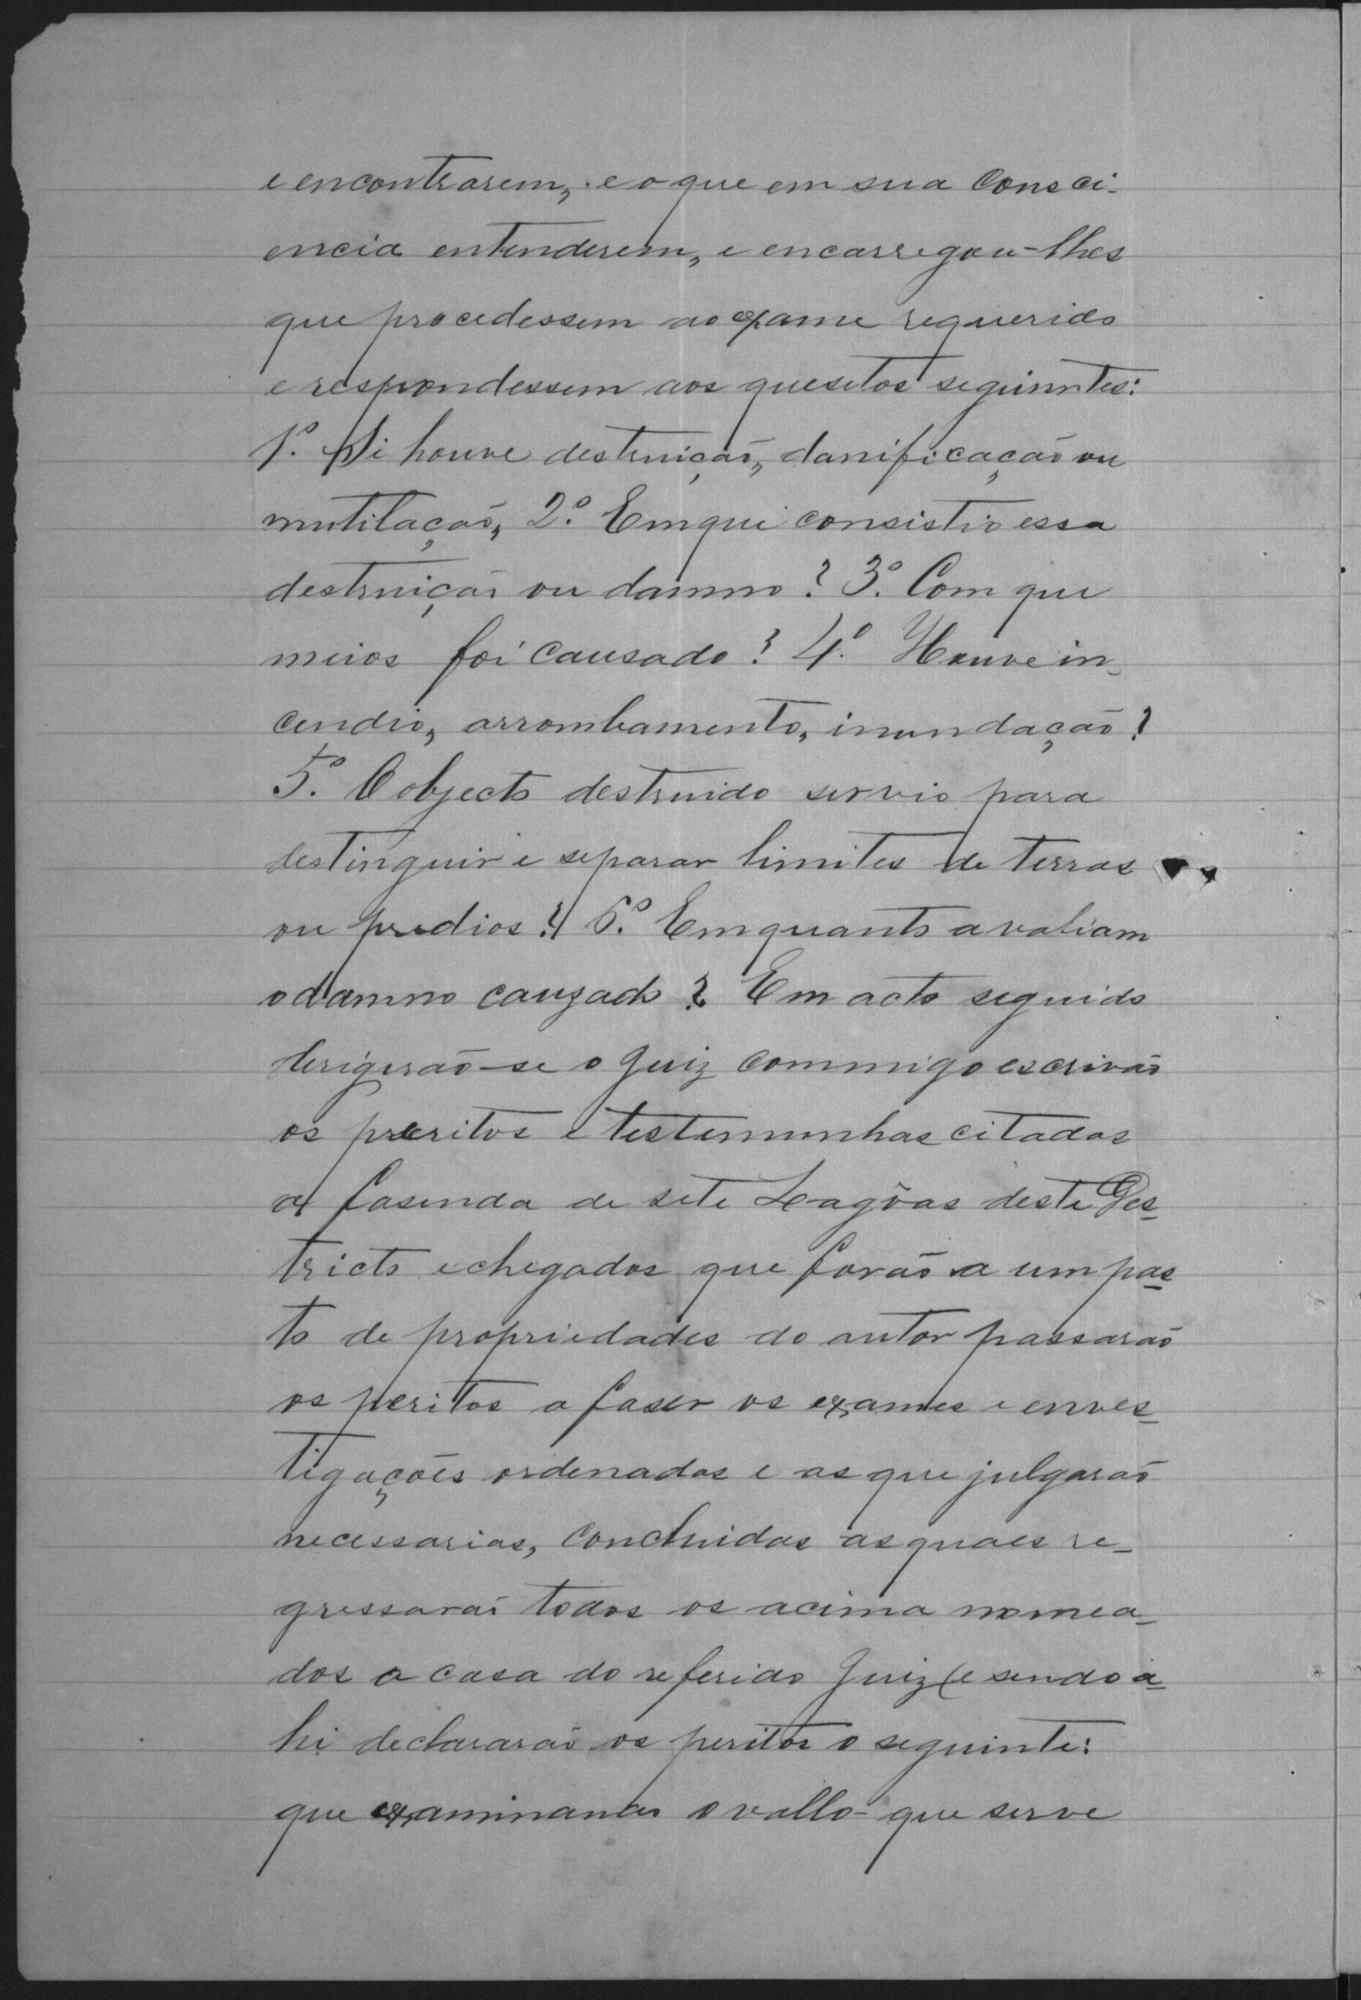 e encontrarem, e o que em sua Consci-
encia entenderem, e encarregou-lhes
que procedessem ao exame requerido
e respondessem aos quesitos seguinntes:
1.º Si houve destruição, danificação ou
mutilação, 2.º Em qui consistio essa
destruição ou damno? 3.º Com que
meios foi causado? 4.º Houve in-
cendio, arrombamento, inundação?
5.º O objecto destruido servio para
destinguir e separar limites de terras
ou predios? 6.º Em quanto avaliam
o damno cauzado? Em acto seguido
derigirão-se o Juiz commigo escrivão
os peritos e testemunhas citadas
a fasenda de sete Lagôas deste Des-
tricto e chegados que forão a um pas-
to de propriedades do autor passarão
os peritos a faser os exames e enves-
tigações ordenadas e as que julgarão
necessarias, Concluidas as quaes re-
gressarão todos os acima nomea-
dos a casa do referido Juiz e sendo a-
hi declararão os peritos o seguinte:
que examinando o vallo que serve